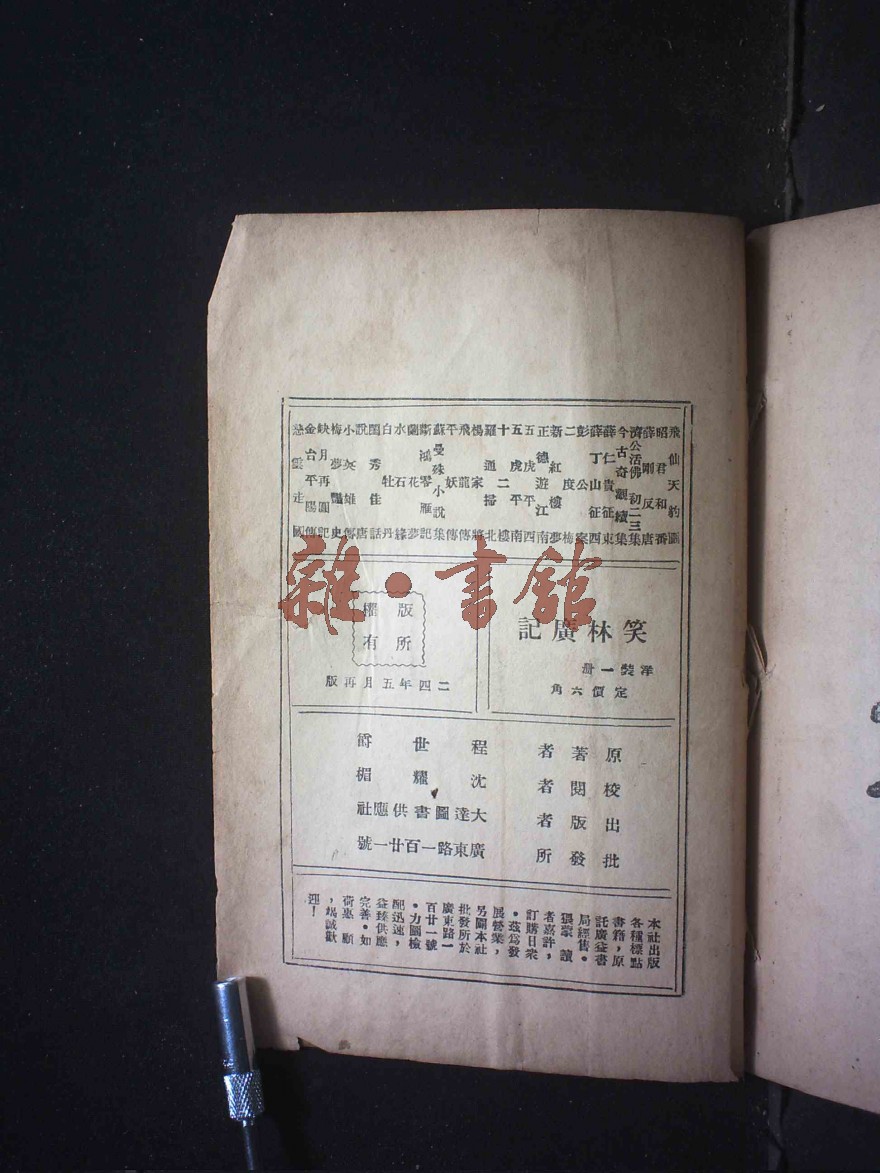 飛仙天豹圖
昭君和番
薛剛反唐
濟公活佛初二三集
今古奇觀續集
薛仁貴征東
薛丁山征西
彭公案
二度梅
新紅樓夢
正德遊江南
五虎平西
五虎平南
十二樓
羅通掃北
楊家將
飛龍傳
平妖傳
蘇曼殊小說集
斷鴻零雁記
蘭花夢
水石緣
白牡丹
閨秀佳話
說唐
小英雄傳
梅夢豔史
缺月再圓記
金台平陽傳
慈雲走國
雜·書館
笑林廣記
洋裝一冊
定價六角
版權
所有
二四年五月再版
原著者 程世爵
校閱者 沈耀楣
出版者 大達圖書供應社
批發所 廣東路一百廿一號
本社出版
各種標點
書籍，原
託廣益書
局經售。
猥蒙 讀
者嘉許，
訂購日衆
。茲爲發
展營業，
另闢本社
批發所於
廣東路一
百廿一號
。力圖檢
配迅速，
益臻供應
完善。如
荷惠 顧
，竭誠歡
迎！